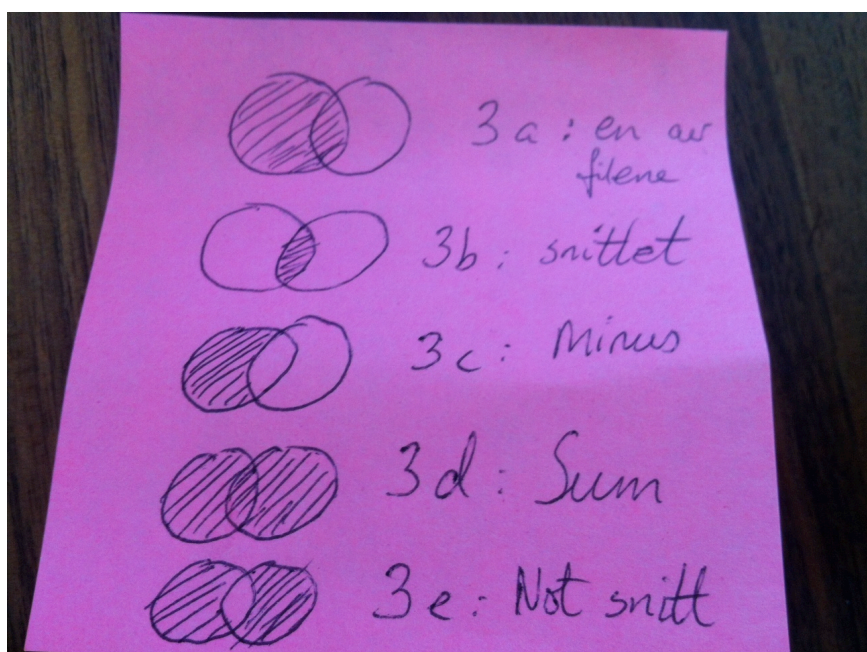 3a : en av
filene
3b : snittet
3c : Minus
3d : Sum
3e : Not snitt